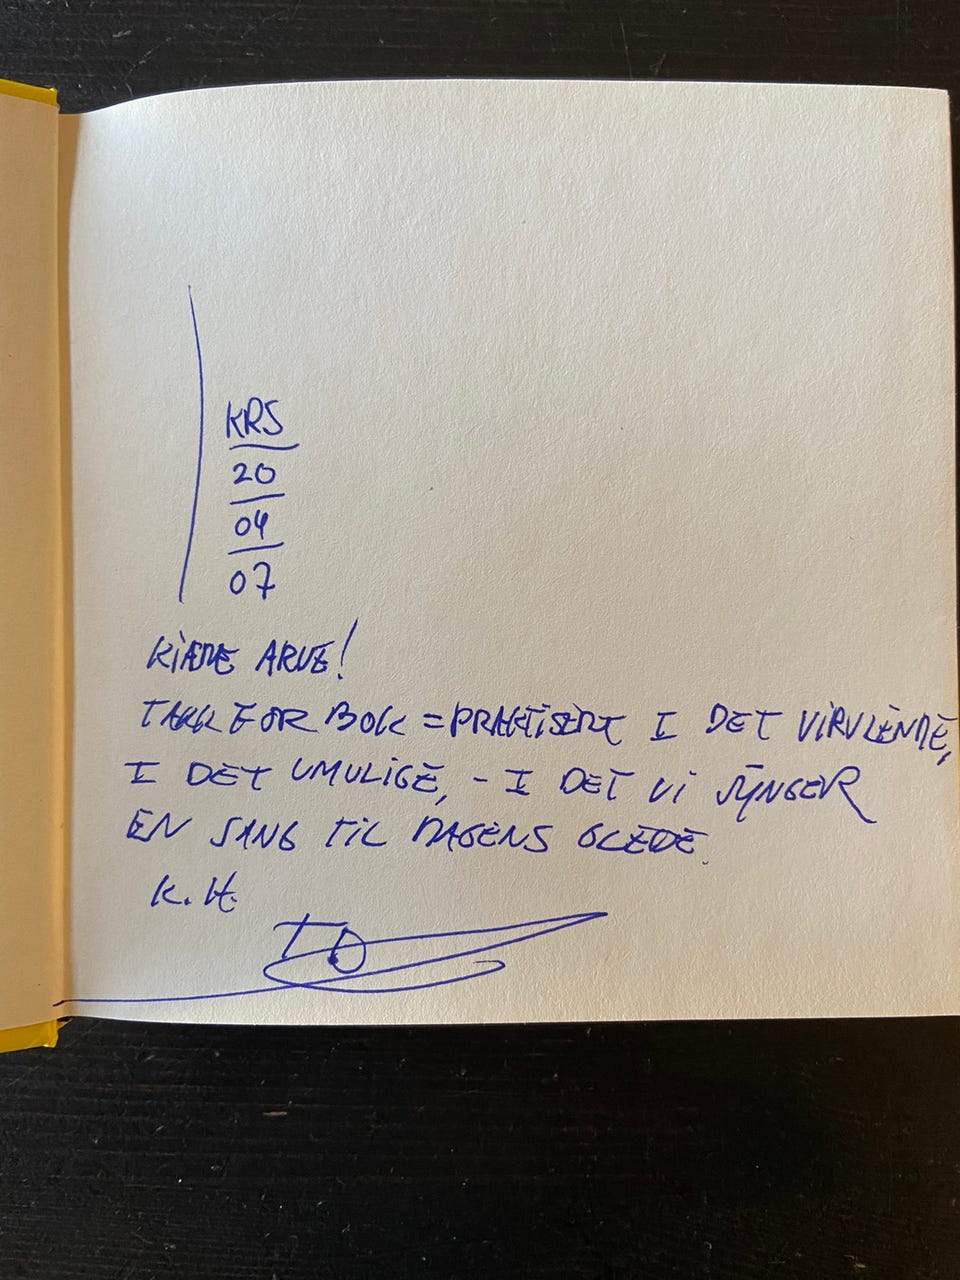 KRS
20
04
07
KJÆRE ARVE!
TAKK FOR BOK = PRAKTISERT I DET VIRVLENDE,
I DET UMULIGE, – I DET VI SYNGER
EN SANG TIL DAGENS GLEDE.
K. H.